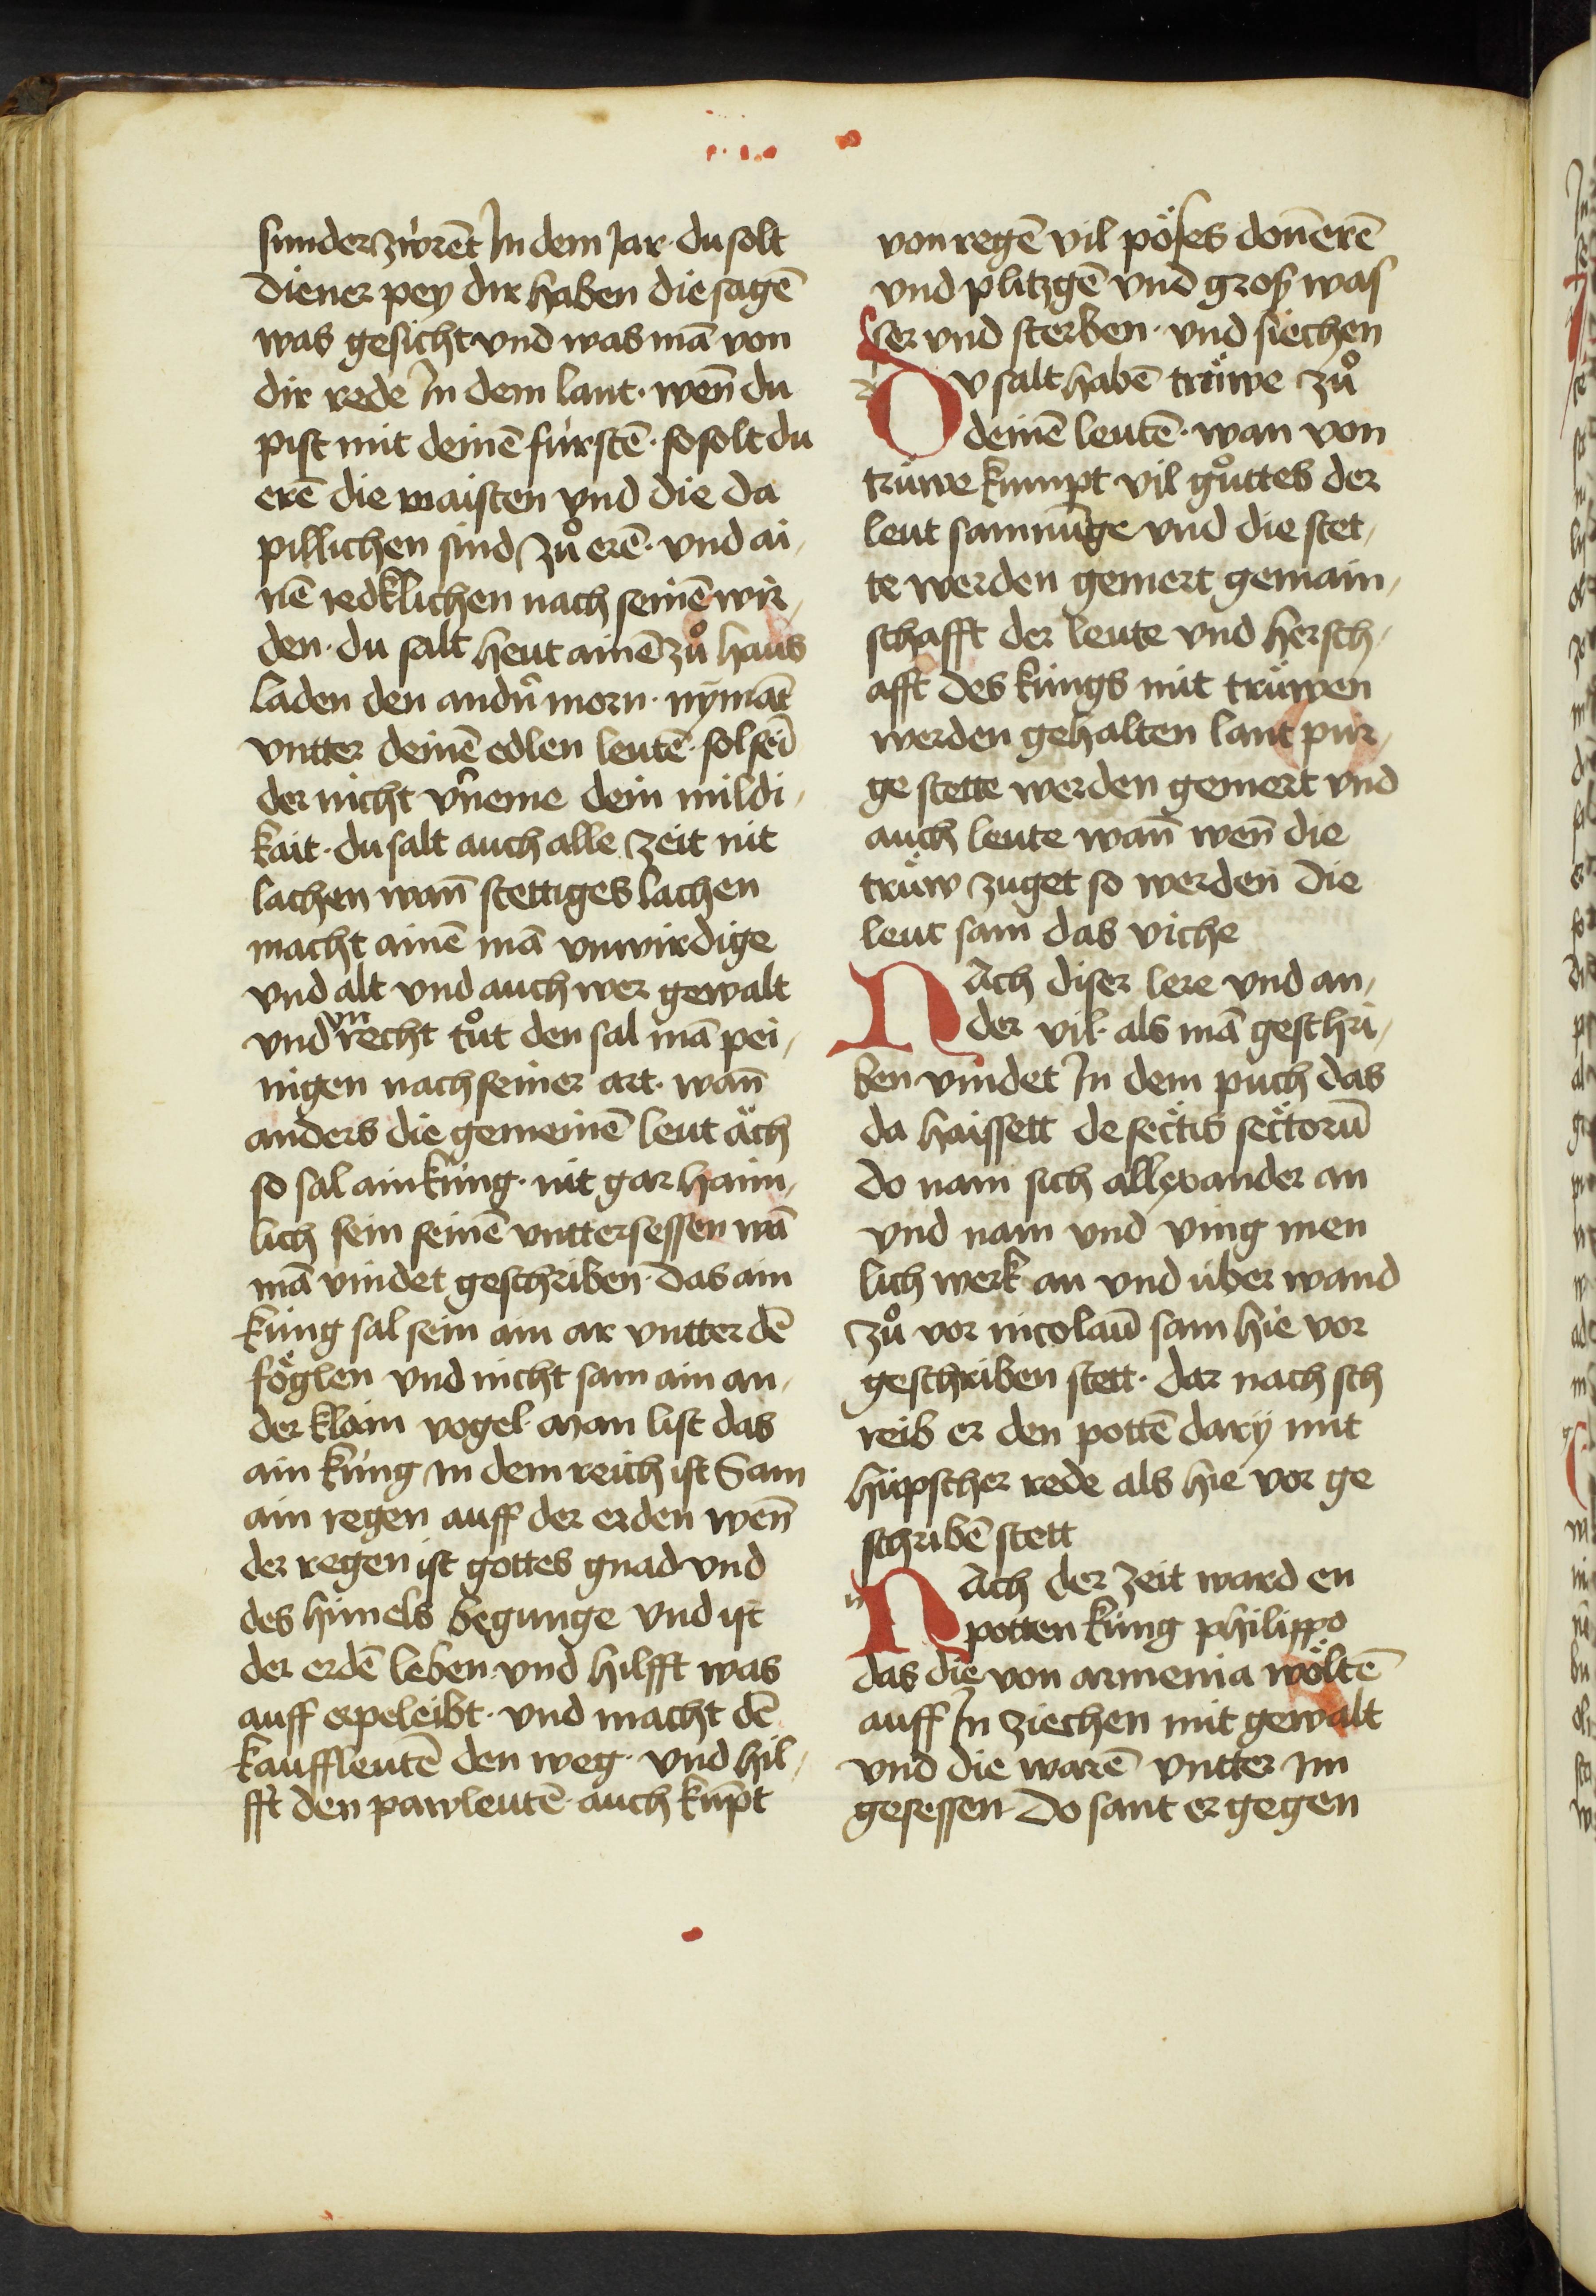 sunder zwrēt In dem Jar · du solt
diener pey dir haben die sagē
was gesicht vnd was mā von
dir rede In dem lant · wen̄ du
pist mit deinē fürstē · so solt du
erē die maisten vnd die da
pillichen sind zů erē · vnd ai-
nē redklichen nach seinē wir-
den · du salt heut ainē zů haus
laden den andn̄ morn · nymāt
vntter deinē edlen leutē · sol sei
der nicht vn̄eme dein mildi-
kait · du salt auch alle zeit nit
lachen wan̄ stettiges lachen
macht ainē mā vnwirdige
vnd alt vnd auch wer gewalt
vnd vnrecht tůt den sal mā pei-
nigen nach seiner art · wan̄
anders die gemeinē leut äch
so sal ain küng · nit gar haim-
lich sein seinē vnttersessen wā
mā vindet geschriben · das ain
küng sal sein ain ar vntter dē
föglen vnd nicht sam ain an-
der klain vogel · man list das
ain küng in dem reich ist Sam
ain regen auff der erden wen̄
der regen ist gottes gnad vnd
des himels begunge vnd ist
der erdē leben vnd hilfft was
auff erpeleibt · vnd macht dē
kauffleutē den weg · vnd hil-
fft den pawleutē · auch kūpt
von regē vil pöses don̄erē
vnd plitzgē vnd groß was
ser vnd sterben · vnd siechen
Dv salt habē trüwe zů
deinē leutē · wan von
trüwe kumpt vil gůttes der
leut samnūge vnd die stet-
te werden gemert gemain-
schafft der leute vnd hersch-
afft des küngs mit trüwen
werden gehalten lant pur-
ge stette werden gemert vnd
auch leute wan̄ wen̄ die
trüw zuget so werden die
leut sam das viche
Nach diser lere vnd an-
der vil · als mā geschri-
ben vindet In dem puch das
da haissett de sectis sectorū
do nam sich allexander an
vnd nam vnd ving men
lich werk an vnd über wand
zů vor nicolaū sam hie vor
geschriben stett · dar nach sch
reib er den pottē dary mit
hüpscher rede als hie vor ge
schribē stett
Nach der zeit ward en
potten küng philippo
das die von armenia wöltē
auff In ziechen mit gewalt
vnd die warē vntter im
gesessen do sant er gegen